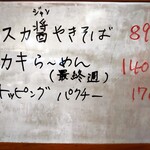 ジャン
スカ醤やきそば 89
カキら～めん 140
(最終週)
トッピング パクチー 170